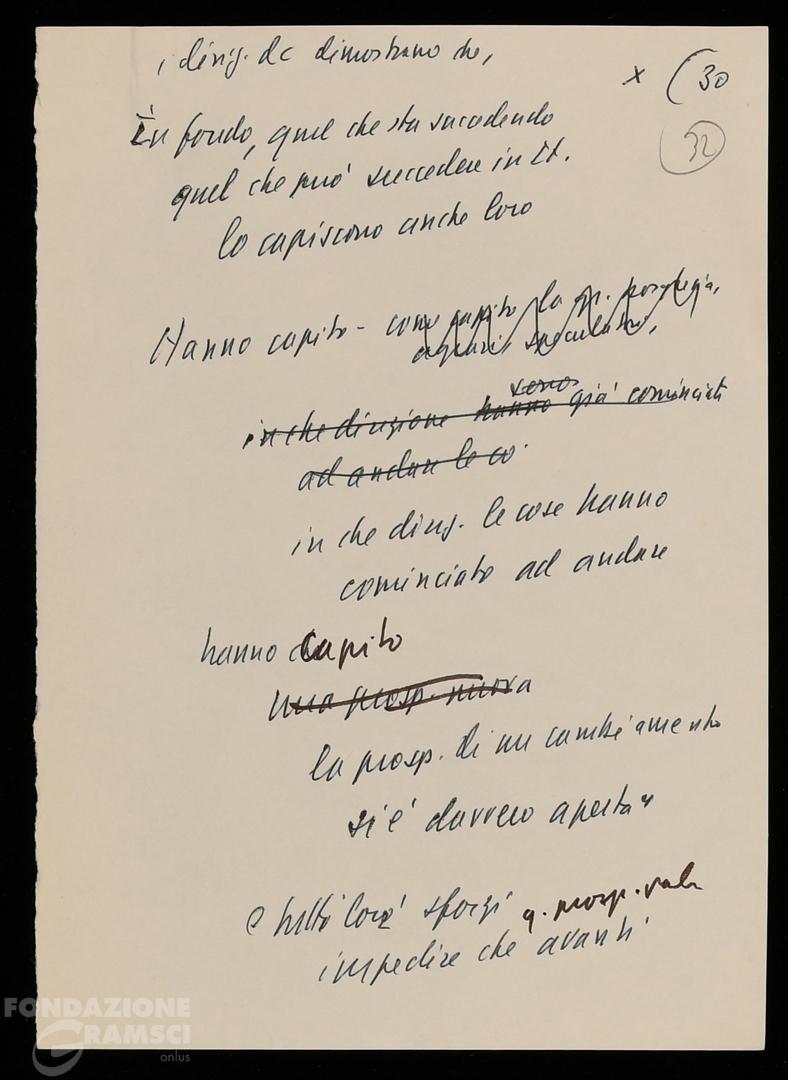 i dirig. dc dimostrano che,
× (30
32
in fondo, quel che sta succedendo
quel che può succedere in It.
lo capiscono anche loro
Hanno capito - come capito la gr.
agrari, speculatori,
sono
in che direzione hanno già cominciati
ad andare le co
in che direz. le cose hanno
cominciato ad andare
hanno capito
una prosp. nuova
la prosp. di un cambiamento
si è davvero aperta"
e tutti loro sforzi q. prosp. vada
impedire che avanti
FONDAZIONE
GRAMSCI
onlus